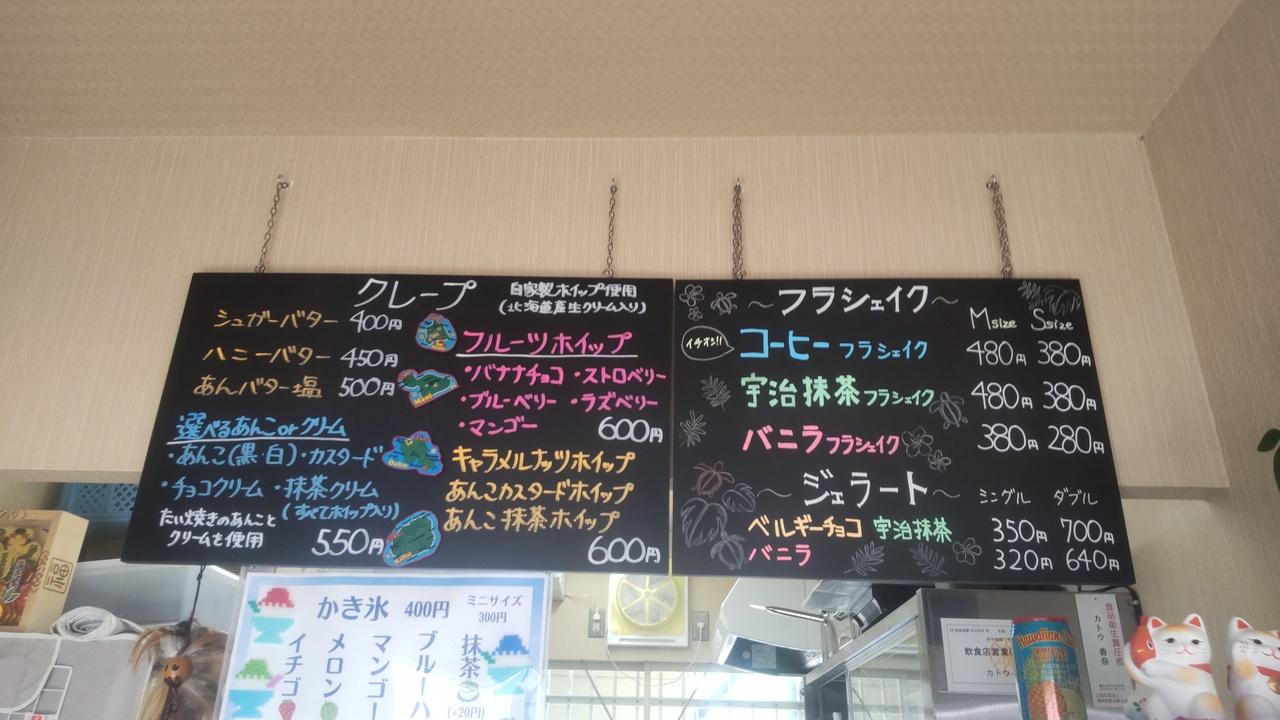 クレープ
自家製ホイップ使用
(北海道産生クリーム入り)
シュガーバター 400円
ハニーバター 450円
あんバター塩 500円
選べるあんこorクリーム
・あんこ(黒・白)・カスタード
・チョコクリーム ・抹茶クリーム
(すべてホイップ入り)
たい焼きのあんこと
クリームを使用
550円
フルーツホイップ
・バナナチョコ ・ストロベリー
・ブルーベリー ・ラズベリー
・マンゴー 600円
キャラメルナッツホイップ
あんこカスタードホイップ
あんこ抹茶ホイップ
600円
Maui
Oahu
〜フラシェイク〜
Msize Ssize
イチオシ!!
コーヒーフラシェイク 480円 380円
宇治抹茶フラシェイク 480円 380円
バニラフラシェイク 380円 280円
〜ジェラート〜
シングル ダブル
ベルギーチョコ 宇治抹茶 350円 700円
バニラ 320円 640円
かき氷 400円
ミニサイズ
300円
イチゴ
メロン
マンゴー
ブルーハ
抹茶
(+20円)
福
飲食店営業
カトウ
食品衛生責任者
カトウ 香奈
Hawaiian